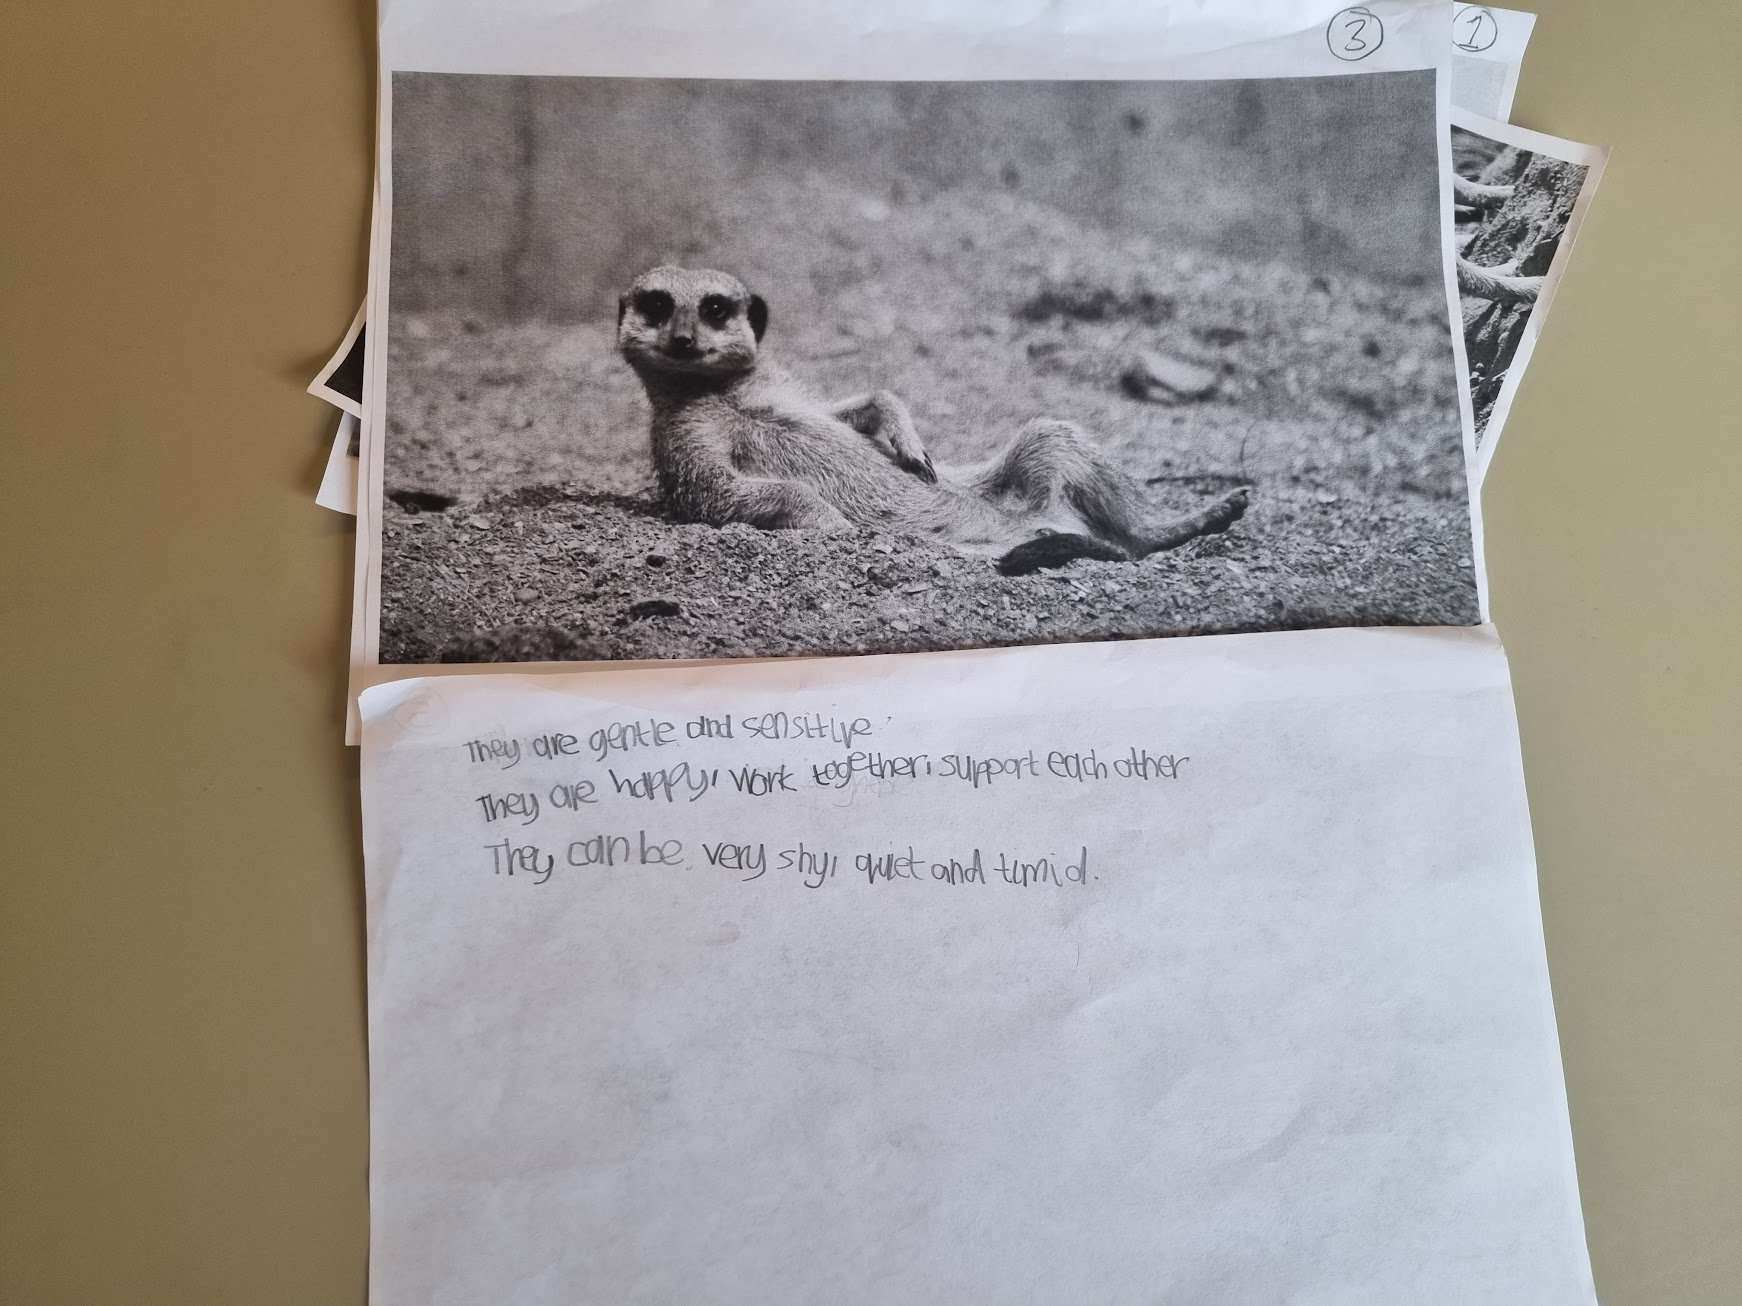 3
1
They are gentle and sensitive
They are happy, work together, support each other
They can be very shy, quiet and timid.